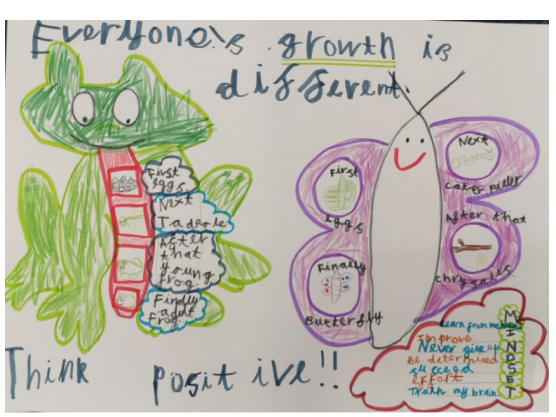 Everyone's growth is
different.
First
eggs
Next
Tadpole
After
that
young
frog.
Finally
adult
frog.
First
eggs
Next
Caterpiller
After that
chrysalis
Finally
Butterfly
Think positive!!
MINDSET
Learn from mistakes
Improve
Never give up
Be determined
succeed
effort
Train my brain